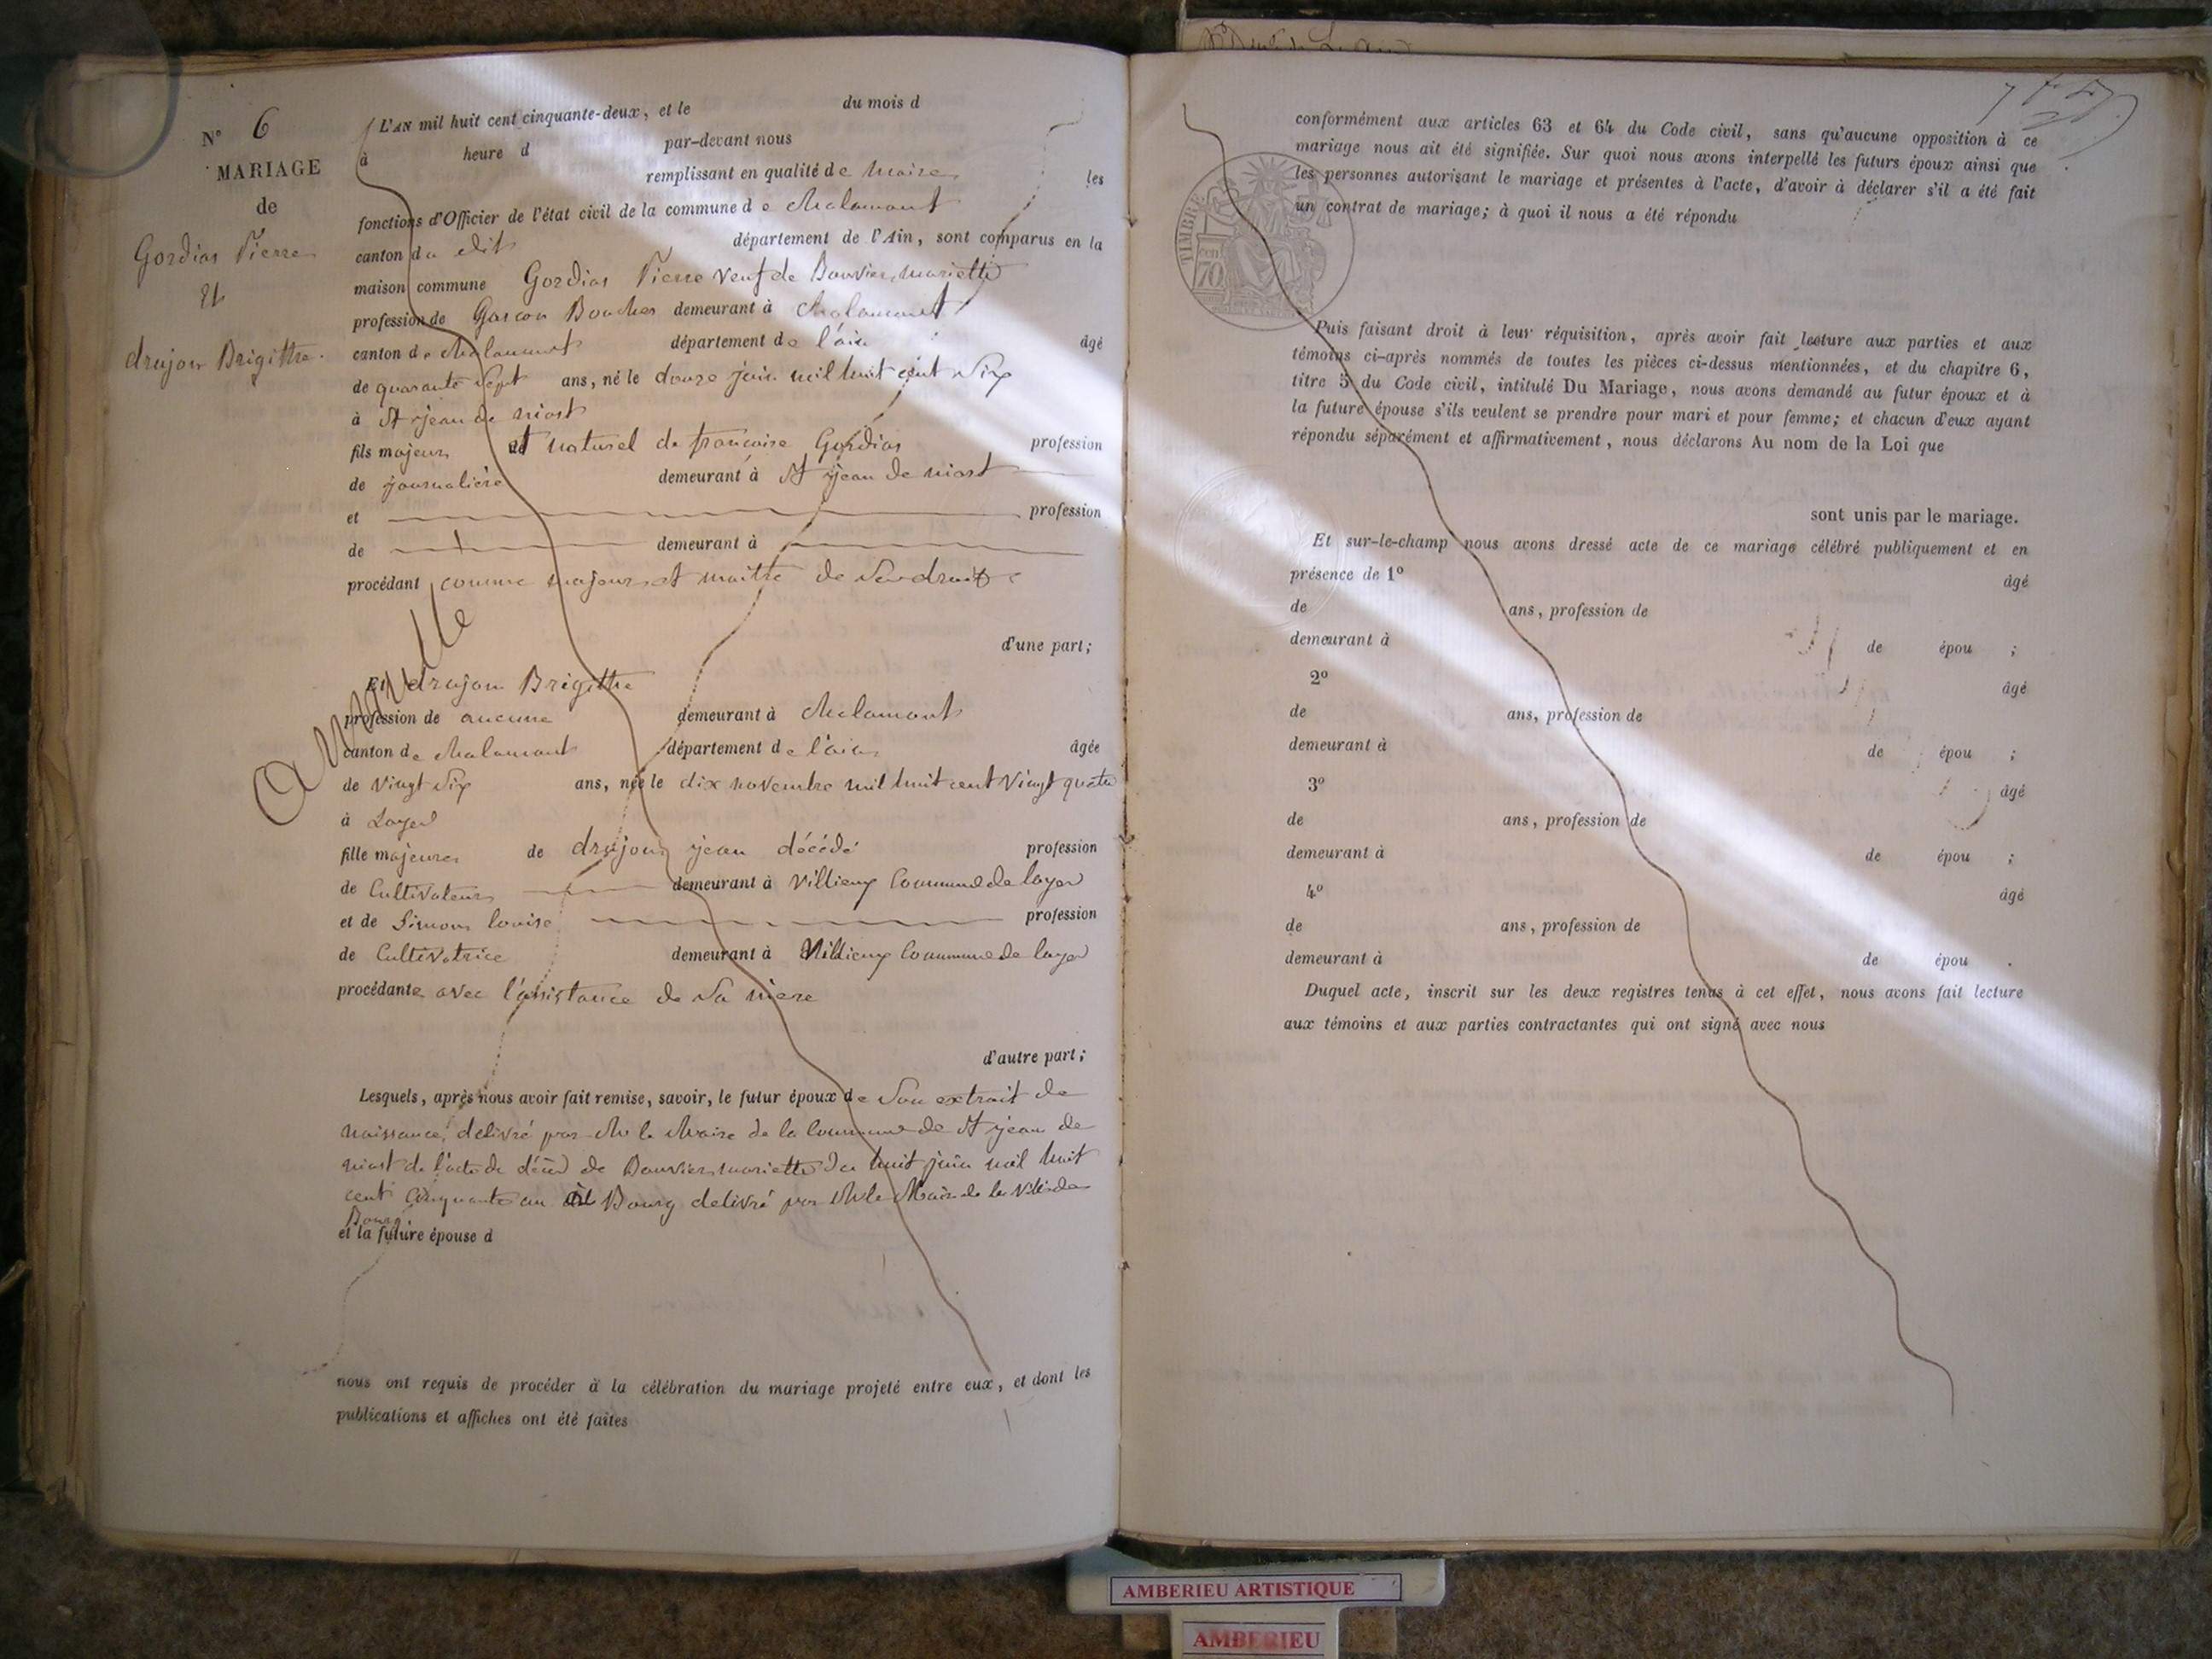 N° 6
MARIAGE
de
Gordias Pierre
Et
drujon Brigitthe.
annulle
L'AN mil huit cent cinquante-deux, et le du mois d
à heure d par-devant nous
remplissant en qualité de Maire les
fonctions d'Officier de l'état civil de la commune de Chalamont
canton du dit département de l'Ain, sont comparus en la
maison commune Gordias Pierre veuf de Bouvier mariette
profession de Garcon Boucher demeurant à Chalamont
canton de Chalamont département de l'ain âgé
de quarante Sept ans, né le douze juin mil huit cent Six
à St jean de niost
fils majeur et naturel de francoise Gordias profession
de journalière demeurant à St jean de niost
et profession
de demeurant à
procédant comme majeur et maitre de Ses droits
d'une part;
Et drujon Brigitthe
profession de aucune demeurant à Chalamont
canton de Chalamont département de l'ain âgée
de Vingt Six ans, née le dix novembre mil huit cent Vingt quatre
à Loyes
fille majeure de drujon jean décédé profession
de Cultivateur demeurant à Villieux Commune de loyes
et de Simon louise profession
de Cultivatrice demeurant à Villieux Commune de loyes
procédante avec l'assistance de Sa mere
d'autre part;
Lesquels, après nous avoir fait remise, savoir, le futur époux de Son extrait de
naissance, delivré par Mr le Maire de la Commune de St jean de
niost de l'acte de décès de Bouvier mariette du huit juin mil huit
cent Cinquante un à Bourg delivré par Mr le Maire de la Ville de
Bourg
et la future épouse d
nous ont requis de procéder à la célébration du mariage projeté entre eux, et dont les
publications et affiches ont été faites
conformément aux articles 63 et 64 du Code civil, sans qu'aucune opposition à ce
mariage nous ait été signifiée. Sur quoi nous avons interpellé les futurs époux ainsi que
les personnes autorisant le mariage et présentes à l'acte, d'avoir à déclarer s'il a été fait
un contrat de mariage; à quoi il nous a été répondu
TIMBRE
70
Puis faisant droit à leur réquisition, après avoir fait lecture aux parties et aux
témoins ci-après nommés de toutes les pièces ci-dessus mentionnées, et du chapitre 6,
titre 5 du Code civil, intitulé Du Mariage, nous avons demandé au futur époux et à
la future épouse s'ils veulent se prendre pour mari et pour femme; et chacun d'eux ayant
répondu séparément et affirmativement, nous déclarons Au nom de la Loi que
sont unis par le mariage.
Et sur-le-champ nous avons dressé acte de ce mariage célébré publiquement et en
présence de 1° âgé
de ans, profession de
demeurant à de épou ;
2° âgé
de ans, profession de
demeurant à de épou ;
3° âgé
de ans, profession de
demeurant à de épou ;
4° âgé
de ans, profession de
demeurant à de épou .
Duquel acte, inscrit sur les deux registres tenus à cet effet, nous avons fait lecture
aux témoins et aux parties contractantes qui ont signé avec nous
AMBERIEU ARTISTIQUE
AMBERIEU